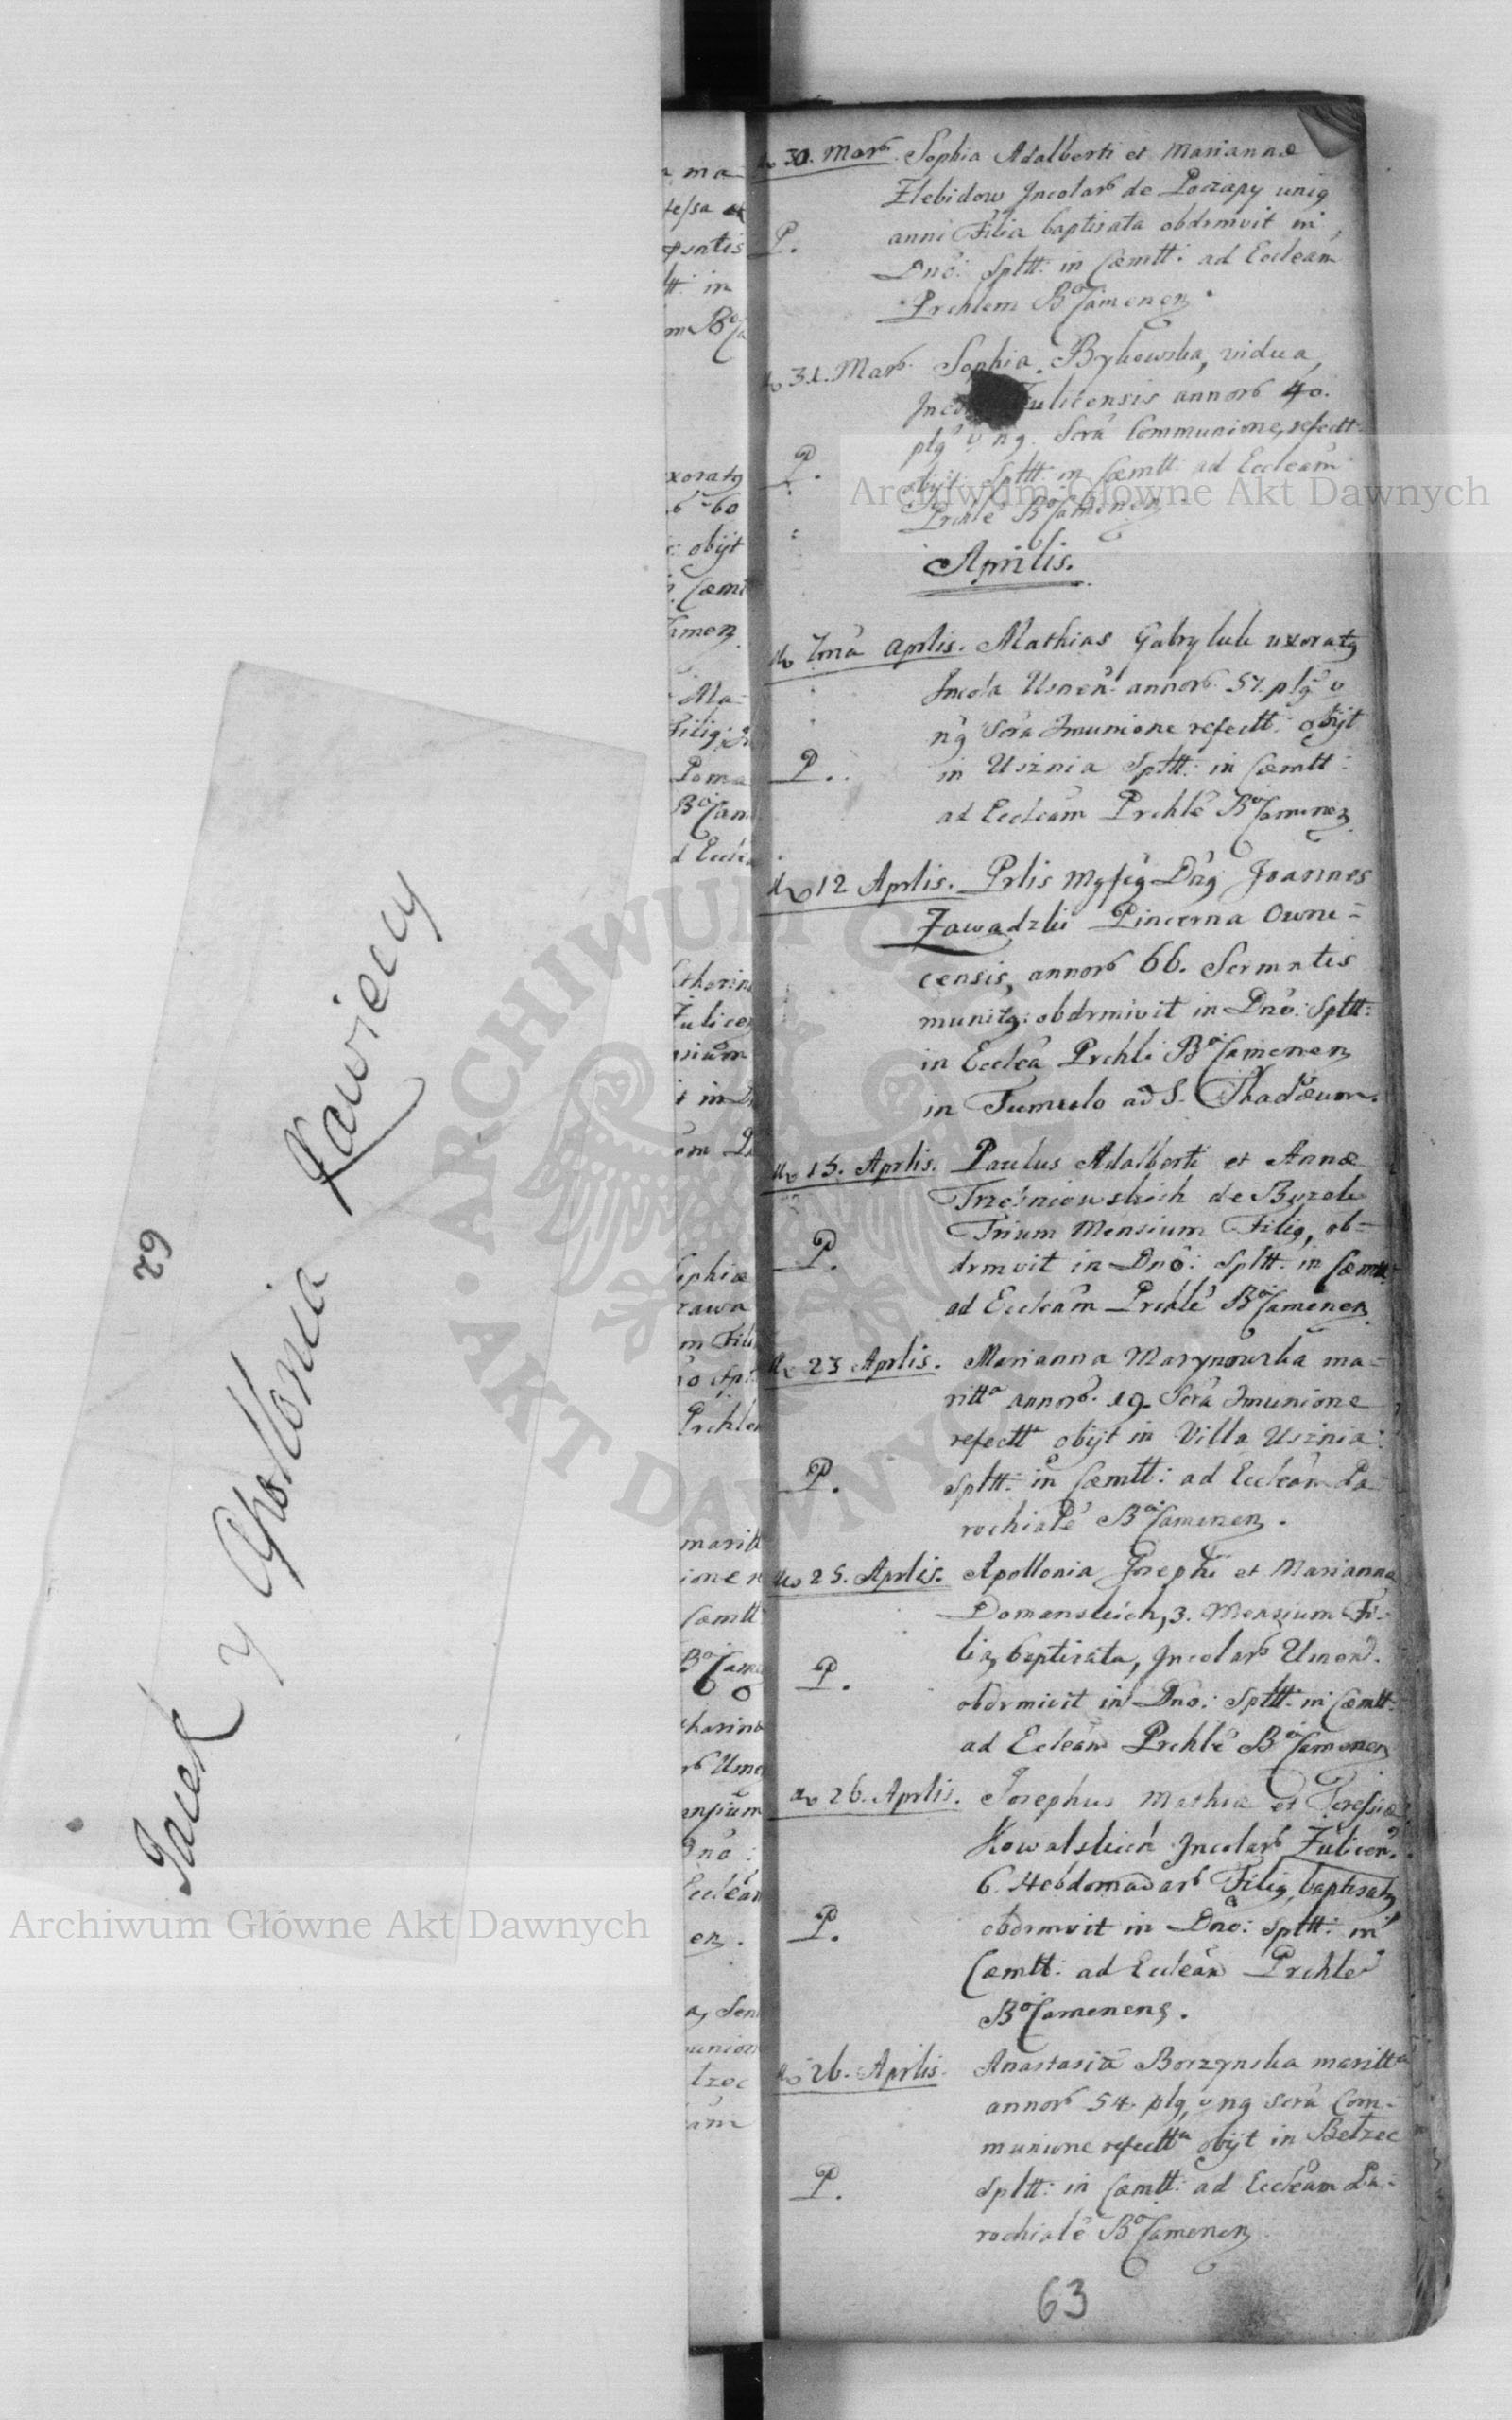 62
Jacek y Apollonia Kawiecy
a ma
fessa et
psntis
tt: in
m Bo
xoratq
60
obijt
Cæmt
Camen
Ma
Filiq
Poma
Bo Cam
d Eccle
Zulicen
sium
t in D
Sophiæ
zawa
m Fili
Prchlem
maritt
ione r
Cæmtt
Bo Came
tharina
Usne
ensium
Dno:
Ecclea
en.
a, Sen
union
tzec
am
do 30. Marb. Sophia Adalberti et Mariannæ
Zlebidow Incolarb de Poczapy uniq
P. anni Filia baptisata obdrmvit in
Dno: Spltt: in Cæmtt: ad Eccleam
Prchlem Bo Camenen.
do 31. Marb. Sophia Bykowska, vidua,
Inco Zulicensis annorb 40.
plq v nq. Scra Communione, refectt:
P. obijt: Spltt: in Cæmtt: ad Eccleam
Prchle Bo Camenen.
Aprilis.
do 1ma Aprlis. Mathias Gabryluk uxoratq
Incola Usnen: annorb. 57. plq v
nq Scra Imunione refectt: obijt
P. in Usznia Spltt: in Cæmtt:
ad Eccleam Prchle Bo Camenen
do 12 Aprlis. Prlis Mgfcq Dnq Joannes
Zawadzki Pincerna Owru=
censis, annorb 66. Scrmntis
munitq: obdrmivit in Dno: Spltt:
in Ecclea Prchli Bo Camenen
in Tumulo ad S. Thadæum.
do 15. Aprlis. Paulus Adalberti et Annæ
Trzesniowskich de Buzek
Trium Mensium Filiq, ob=
P. drmvit in Dno: Spltt: in Cæmtt
ad Eccleam Prchle Bo Camenen
do 23 Aprlis. Marianna Marynowska ma=
ritta annorb. 19 Scra Imunione
refectta obijt in Villa Usznia:
P. Spltt: in Cæmtt: ad Eccleam Pa
rochiale Bo Camenen.
do 25. Aprlis. Apollonia Josephi et Marianna
Domanskich, 3. Mensium Fi=
P. lia, baptisata, Incolarb Usnen.
obdrmivit in Dno: Spltt: in Cæmtt:
ad Eccleam Prchle Bo Camenen
do 26. Aprlis. Josephus Mathiæ et Teresiæ
Kowalskich Incolarb Zulicen.
6. Hebdomadarb Filiq, baptisatq
P. obdrmvit in Dno: Spltt: in
Cæmtt: ad Eccleam Prchle
Bo Camenens.
do 26. Aprlis. Anastasia Borzynska maritta
annorb 54. plq, v nq scra Com=
munione refectta obijt in Betzec
P. Spltt: in Cæmtt: ad Eccleam Pa=
rochiale Bo Camenen
63
Archiwum Główne Akt Dawnych
Archiwum Główne Akt Dawnych
ARCHIWUM GŁ
AKT DAWNYCH